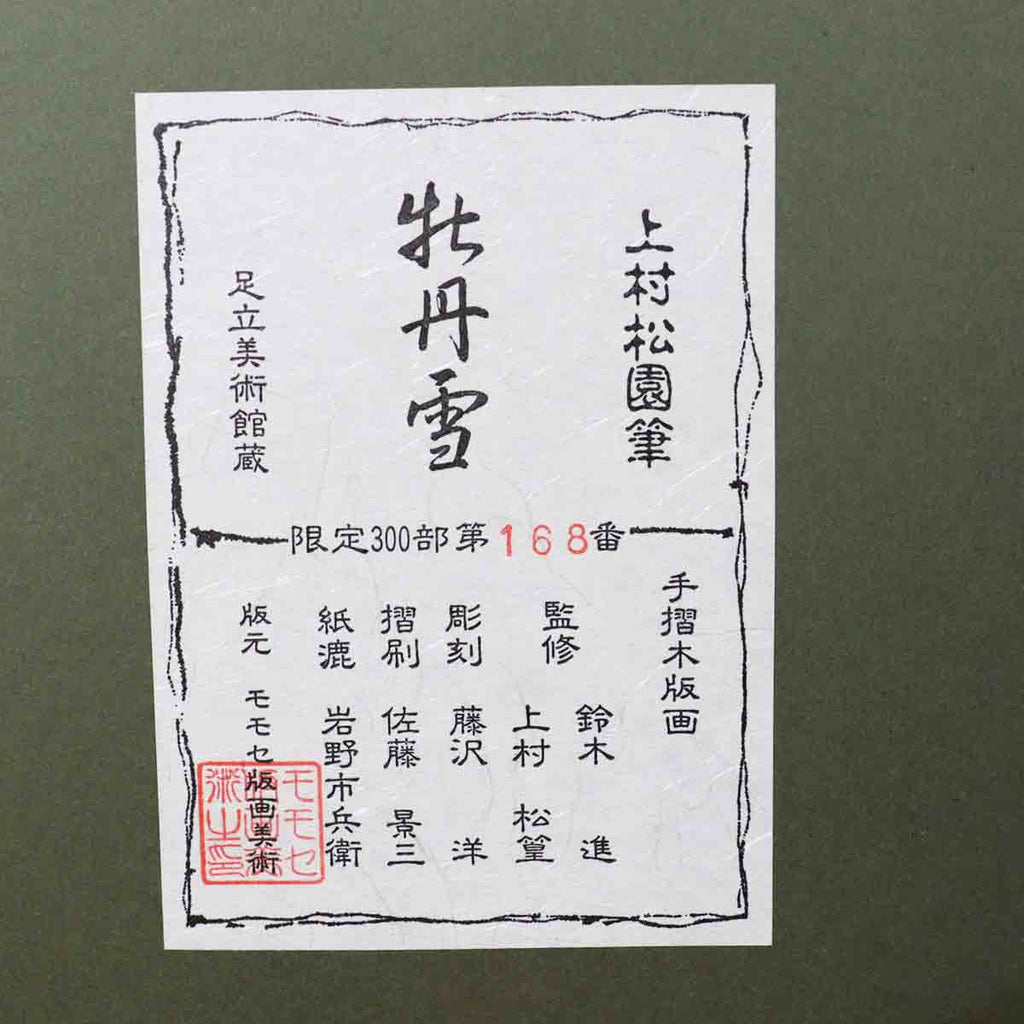 上村松園筆
牡丹雪
足立美術館蔵
限定300部第168番
手摺木版画
監修 鈴木 進
上村 松篁
彫刻 藤沢 洋
摺刷 佐藤 景三
紙漉 岩野市兵衛
版元 モモセ版画美術
モモセ
版画美
術之印